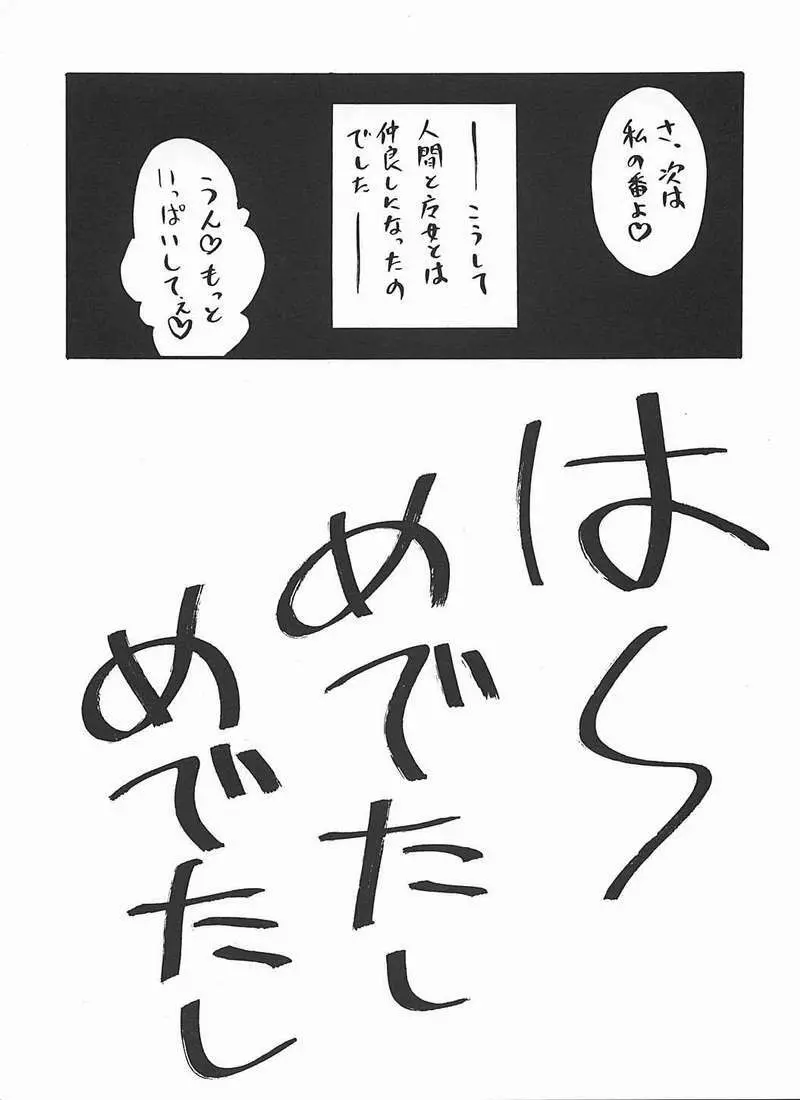 さ、次は
私の番よ♡
――こうして
人間と
とは
仲良しになったの
でした――
うん♡もっと
いっぱいしてぇ♡
は～
めでたし
めでたし